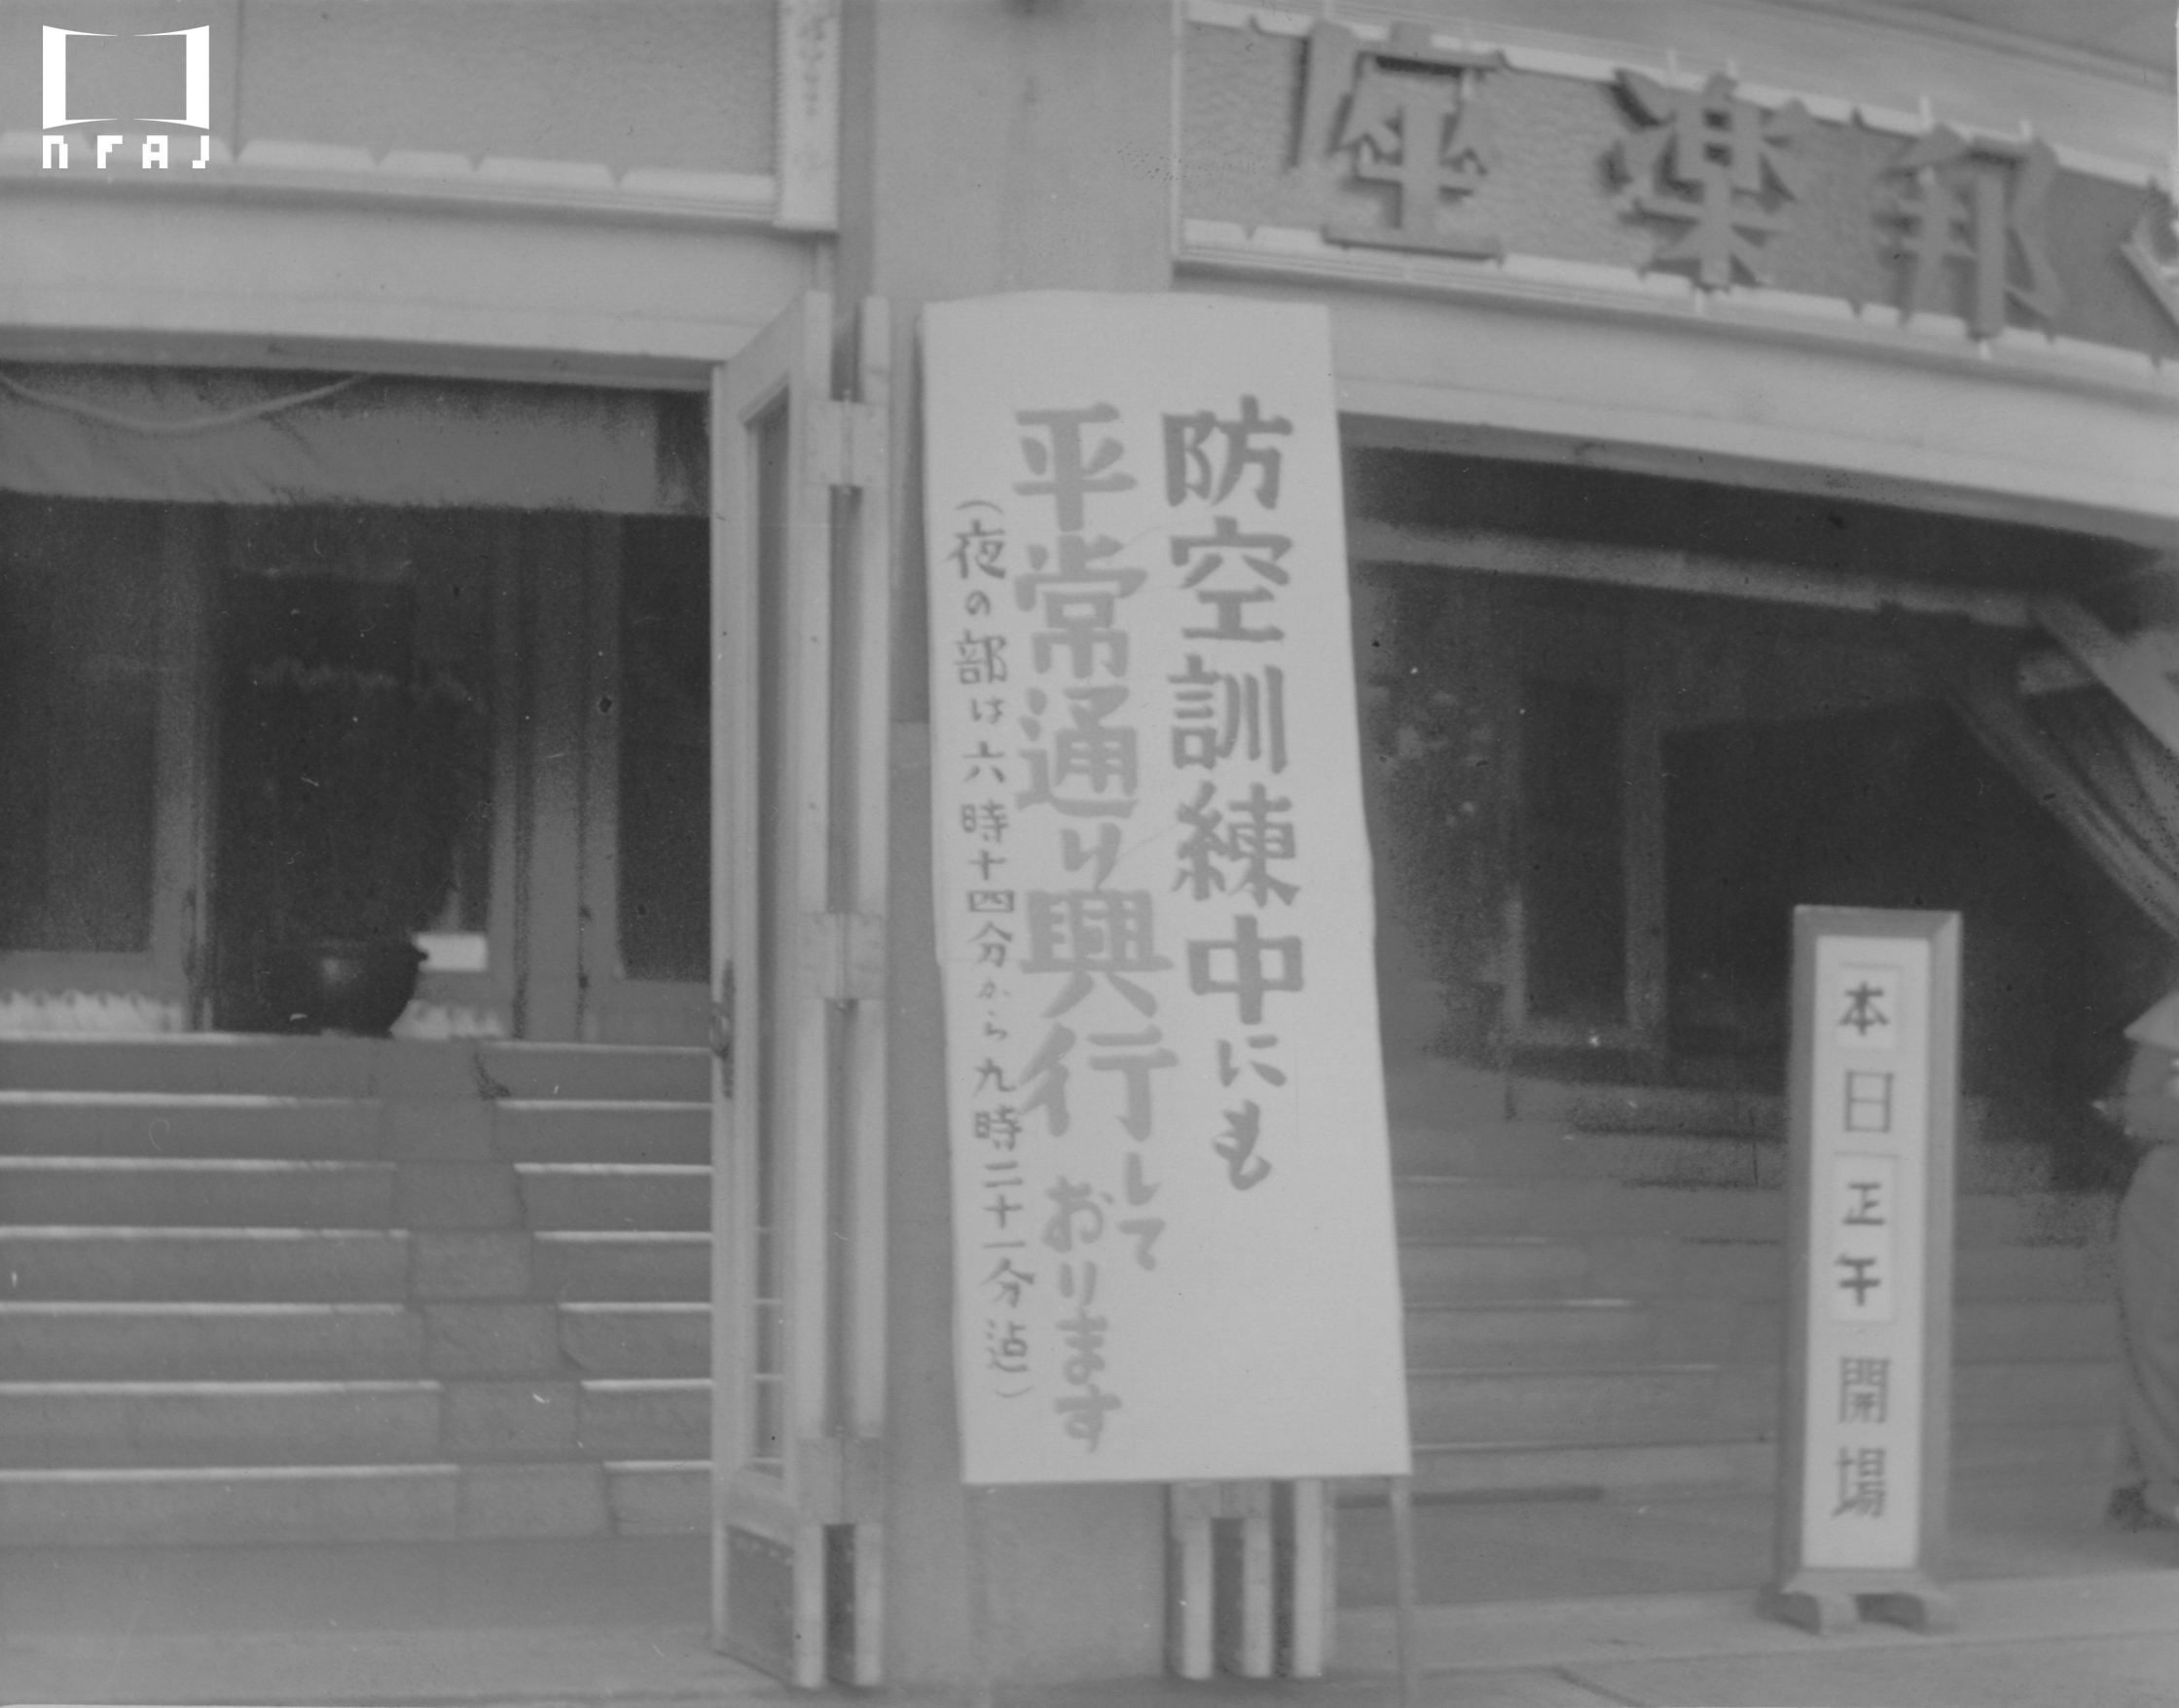 NFAJ
座楽邦
防空訓練中にも
平常通り興行して
おります
(夜の部は六時十四分から九時二十一分迠)
本日正午開場